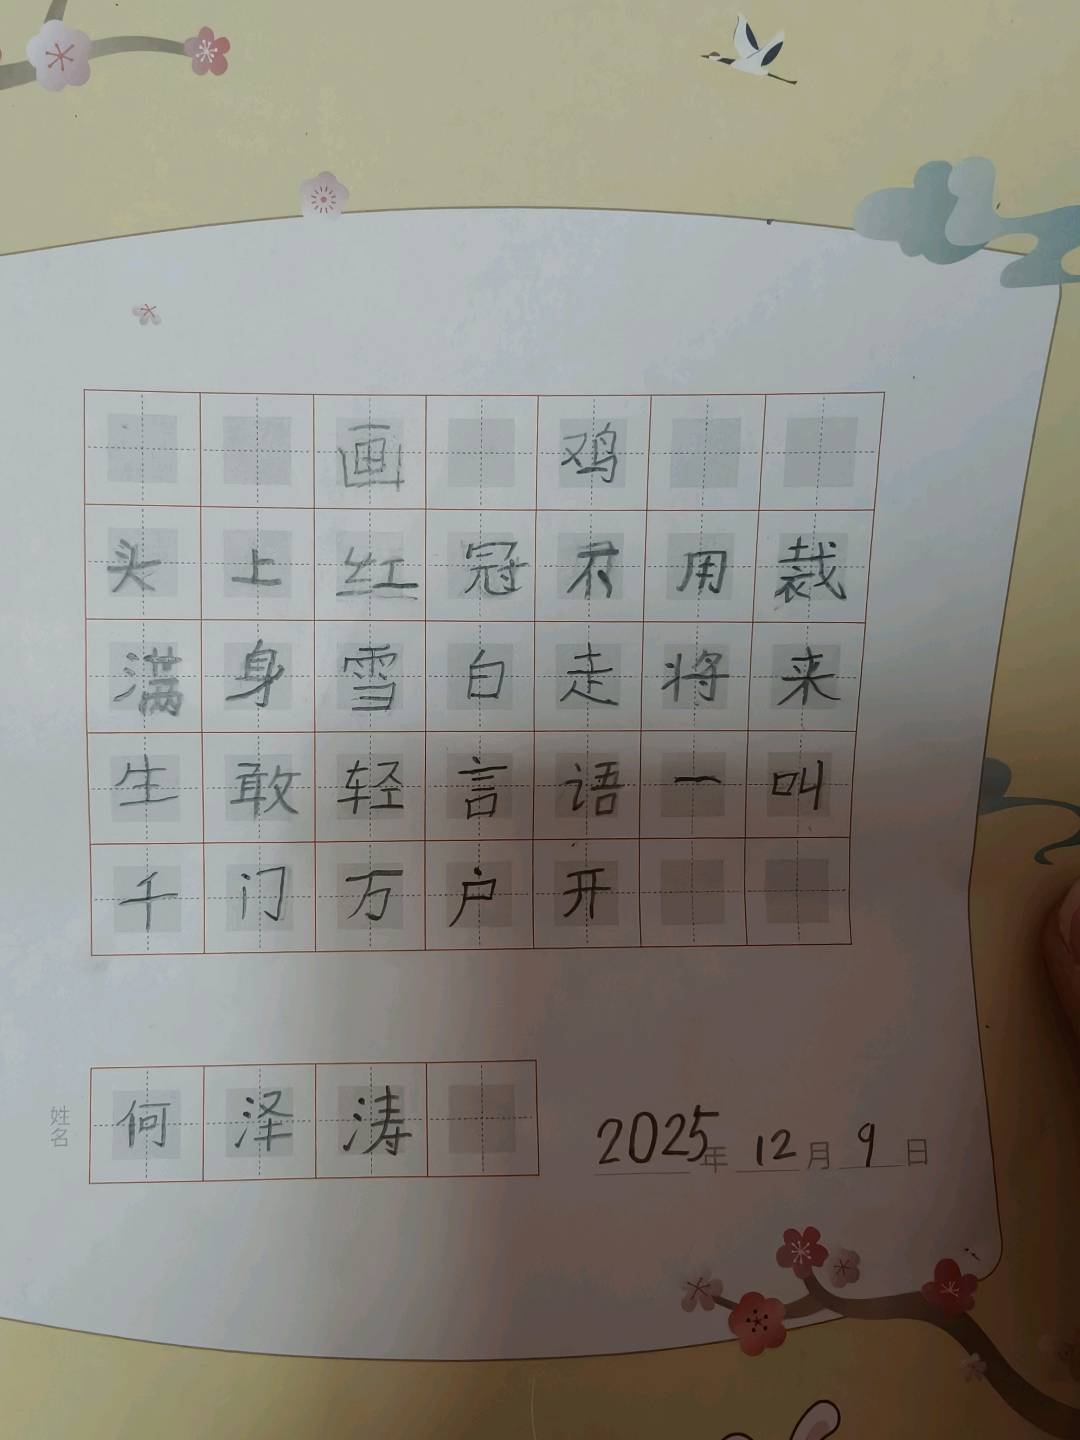 画 鸡
头上红冠不用裁
满身雪白走将来
生敢轻言语一叫
千门万户开
姓名 何泽涛
2025年12月9日